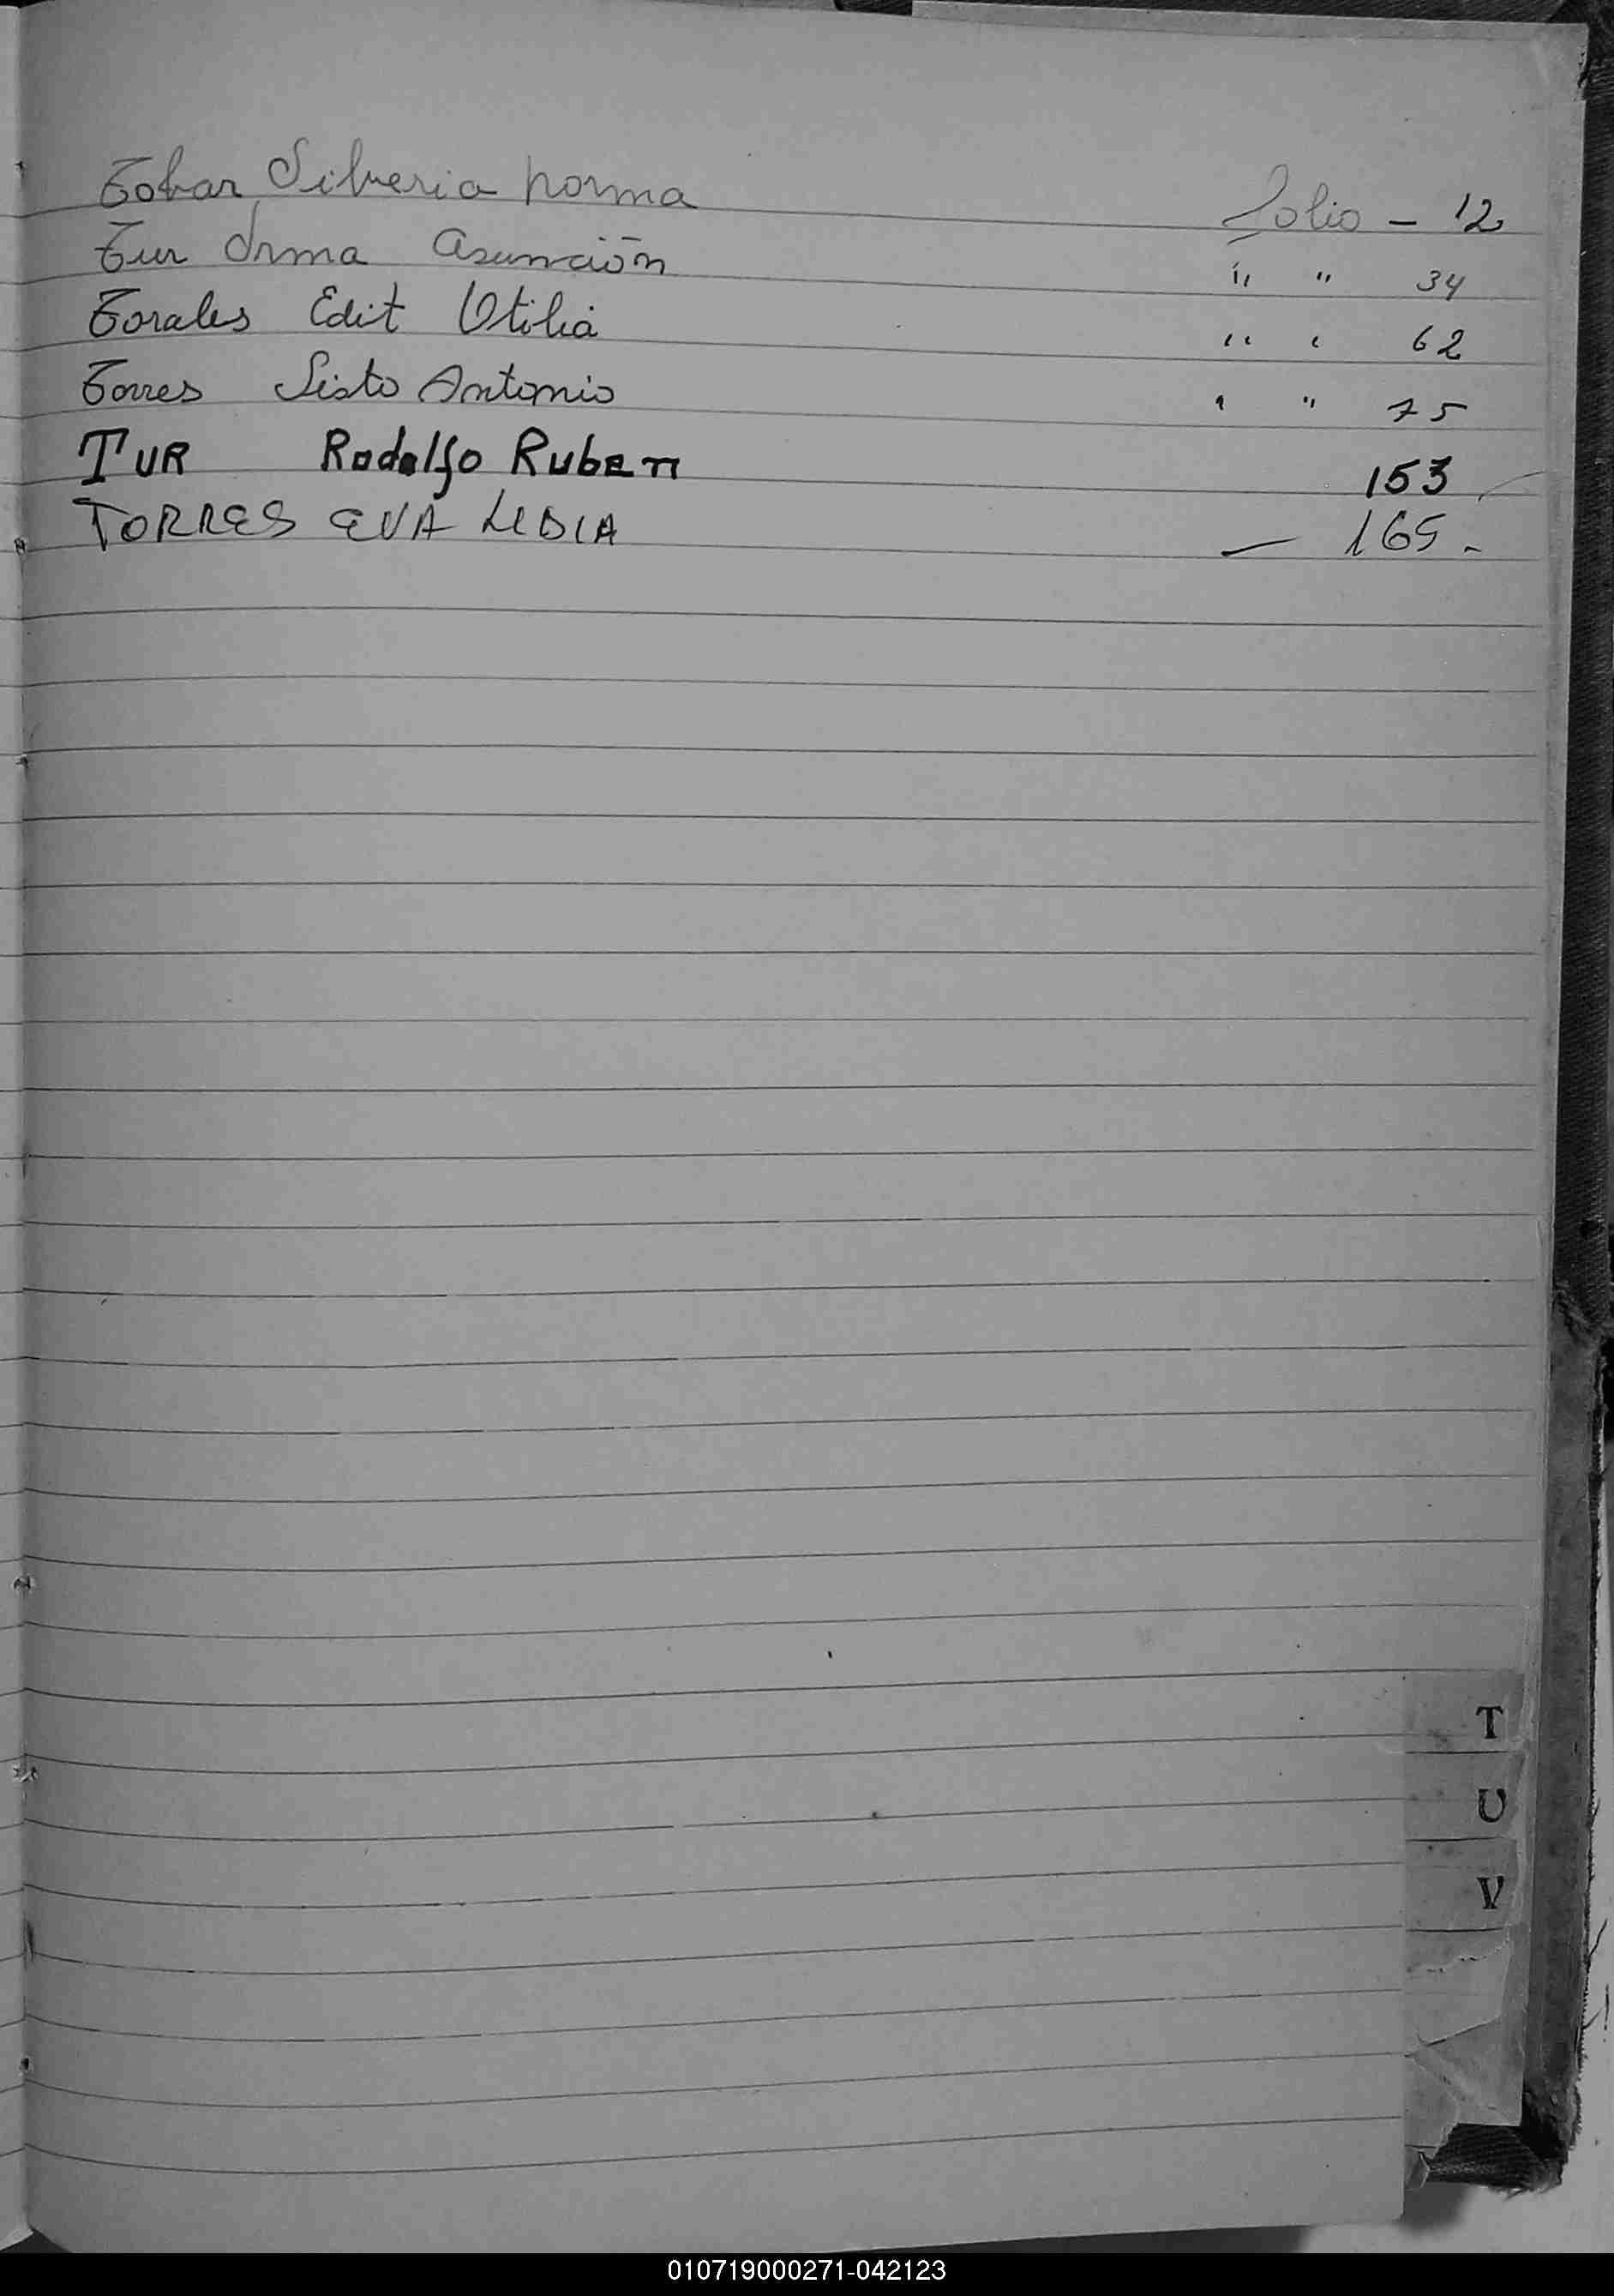 Tobar Silveria Norma Folio - 12
Tur Irma Asunción " " 34
Torales Edit Otilia " " 62
Torres Sisto Antonio " " 75
TUR Rodolfo Ruben 153
TORRES EVA LIDIA — 165 -
T
U
V
010719000271-042123